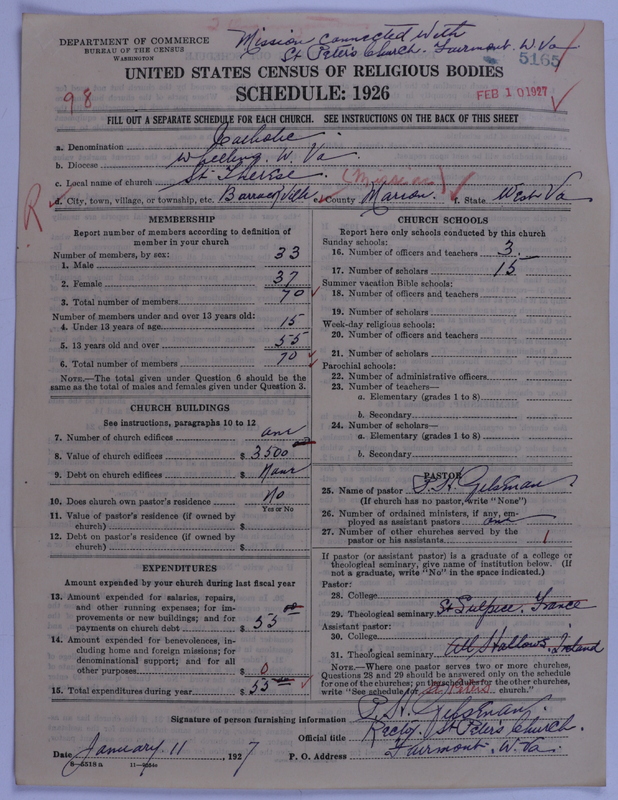 Mission connected with
St Peter's Church. Fairmont. W. Va
DEPARTMENT OF COMMERCE
BUREAU OF THE CENSUS
WASHINGTON
5165
UNITED STATES CENSUS OF RELIGIOUS BODIES
SCHEDULE: 1926
98
FEB 10 1927
FILL OUT A SEPARATE SCHEDULE FOR EACH CHURCH. SEE INSTRUCTIONS ON THE BACK OF THIS SHEET
a. Denomination Catholic
b. Diocese Wheeling. W. Va.
c. Local name of church St Therese (Mission)
R d. City, town, village, or township, etc. Barrackville e. County Marion. f. State West Va
MEMBERSHIP
Report number of members according to definition of
member in your church
Number of members, by sex:
1. Male 33
2. Female 37
3. Total number of members 70
Number of members under and over 13 years old:
4. Under 13 years of age 15
5. 13 years old and over 55
6. Total number of members 70
NOTE.—The total given under Question 6 should be the
same as the total of males and females given under Question 3.
CHURCH BUILDINGS
See instructions, paragraphs 10 to 12
7. Number of church edifices one
8. Value of church edifices $ 3500
9. Debt on church edifices $ None
10. Does church own pastor's residence No
Yes or No
11. Value of pastor's residence (if owned by
church) $
12. Debt on pastor's residence (if owned by
church) $
EXPENDITURES
Amount expended by your church during last fiscal year
13. Amount expended for salaries, repairs,
and other running expenses; for im-
provements or new buildings; and for
payments on church debt $ 55
14. Amount expended for benevolences, in-
cluding home and foreign missions; for
denominational support; and for all
other purposes $ 0
15. Total expenditures during year $ 55
CHURCH SCHOOLS
Report here only schools conducted by this church
Sunday schools:
16. Number of officers and teachers 3
17. Number of scholars 15
Summer vacation Bible schools:
18. Number of officers and teachers
19. Number of scholars
Week-day religious schools:
20. Number of officers and teachers
21. Number of scholars
Parochial schools:
22. Number of administrative officers
23. Number of teachers—
a. Elementary (grades 1 to 8)
b. Secondary
24. Number of scholars—
a. Elementary (grades 1 to 8)
b. Secondary
PASTOR
25. Name of pastor P. H. Gilsman
(If church has no pastor, write "None")
26. Number of ordained ministers, if any, em-
ployed as assistant pastors one
27. Number of other churches served by the
pastor or his assistants 1
If pastor (or assistant pastor) is a graduate of a college or
theological seminary, give name of institution below. (If
not a graduate, write "No" in the space indicated.)
Pastor:
28. College
29. Theological seminary St Sulpice, France
Assistant pastor:
30. College
31. Theological seminary All Hallows, Ireland
NOTE.—Where one pastor serves two or more churches,
Questions 28 and 29 should be answered only on the schedule
for one of the churches; on the schedules for the other churches,
write "See schedule for St Peter's church."
Signature of person furnishing information P. H. Gilsman
Official title Rector St Peter's Church.
Date January 11, 1927 P. O. Address Fairmont. W. Va.
8—5518 a